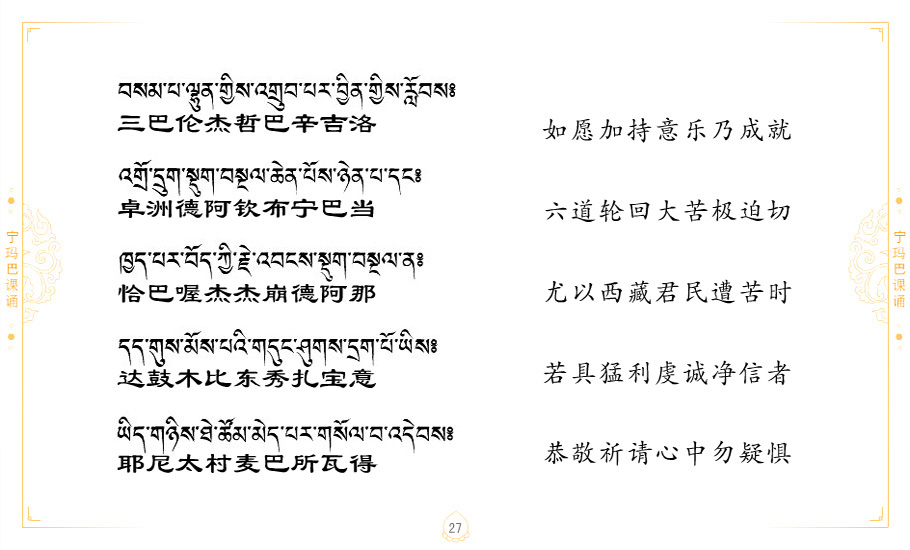 བསམ་པ་ལྷུན་གྱིས་འགྲུབ་པར་བྱིན་གྱིས་རློབས༔
三巴伦杰哲巴辛吉洛
如愿加持意乐乃成就
འགྲོ་དྲུག་སྡུག་བསྔལ་ཆེན་པོས་ཉེན་པ་དང་༔
卓洲德阿钦布宁巴当
六道轮回大苦极迫切
ཁྱད་པར་བོད་ཀྱི་རྗེ་འབངས་སྡུག་བསྔལ་ན༔
恰巴喔杰杰崩德阿那
尤以西藏君民遭苦时
དད་གུས་མོས་པའི་གདུང་ཤུགས་དྲག་པོ་ཡིས༔
达鼓木比东秀扎宝意
若具猛利虔诚净信者
ཡིད་གཉིས་ཐེ་ཚོམ་མེད་པར་གསོལ་བ་འདེབས༔
耶尼太村麦巴所瓦得
恭敬祈请心中勿疑惧
宁玛巴课诵
宁玛巴课诵
27